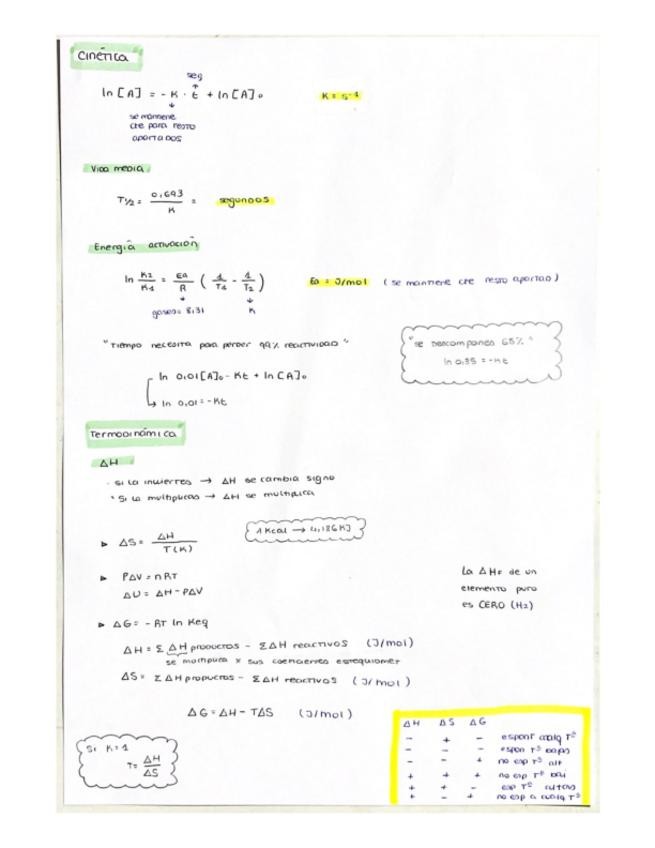 Cinética
seg
ln [A] = - K · t + ln [A]₀
K = s⁻¹
se mantiene
cte para resto
apartados
Vida media
T1/2 = 0,693 / K = segundos
Energía activación
ln K2/K1 = Ea/R ( 1/T1 - 1/T2 )
Ea = J/mol (se mantiene cte resto apartad)
gases = 8,31
K
"Tiempo necesita para perder 99% reactividad"
"se descompones 65%"
ln 0,35 = -Kt
ln 0,01[A]₀ - Kt + ln [A]₀
ln 0,01 = -Kt
Termodinámica
ΔH
· Si la inviertes → ΔH se cambia signo
· Si la multiplicas → ΔH se multiplica
1 Kcal → 4,186 KJ
▸ ΔS = ΔH / T(K)
▸ PΔV = nRT
ΔU = ΔH - PΔV
La ΔHf de un
elemento puro
es CERO (H₂)
▸ ΔG = - RT ln Keq
ΔH = Σ ΔH productos - ΣΔH reactivos (J/mol)
se multiplica x sus coeficientes estequiomet
ΔS = Σ ΔH productos - ΣΔH reactivos (J/mol)
ΔG = ΔH - TΔS (J/mol)
Si K = 1
T = ΔH / ΔS
ΔH ΔS ΔG
- + - espont cualq Tª
- - - espon Tª bajas
- - + no esp Tª alt
+ + + no esp Tª baj
+ + - esp Tª altas
+ - + no esp a cualq Tª